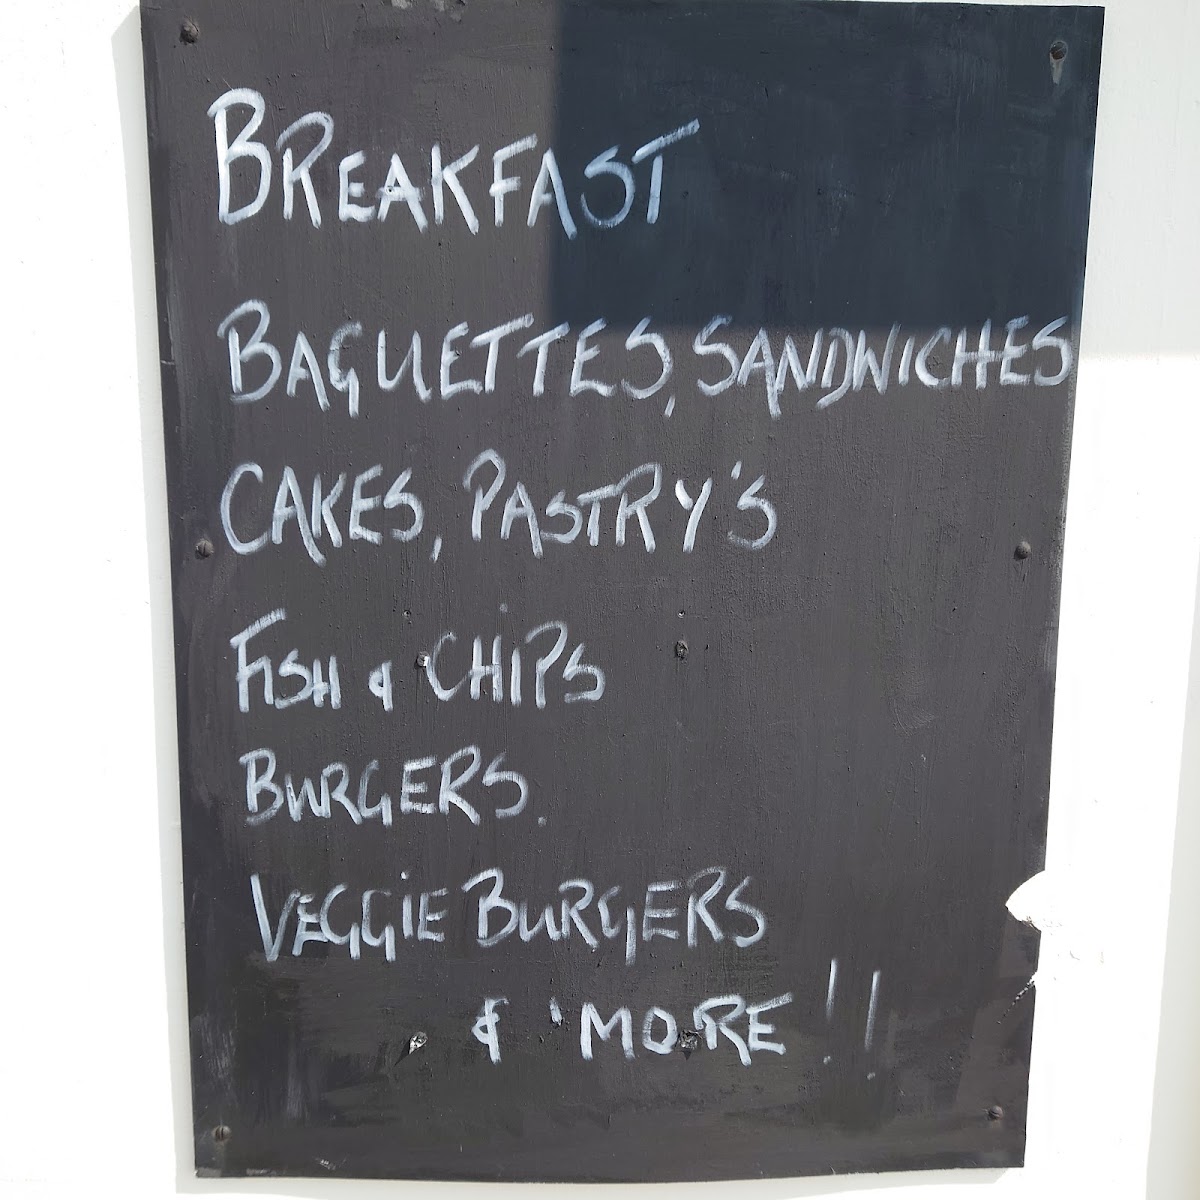 BREAKFAST
BAGUETTES, SANDWICHES
CAKES, PASTRY'S
FISH & CHIPS
BURGERS.
VEGGIE BURGERS
& 'MORE!!